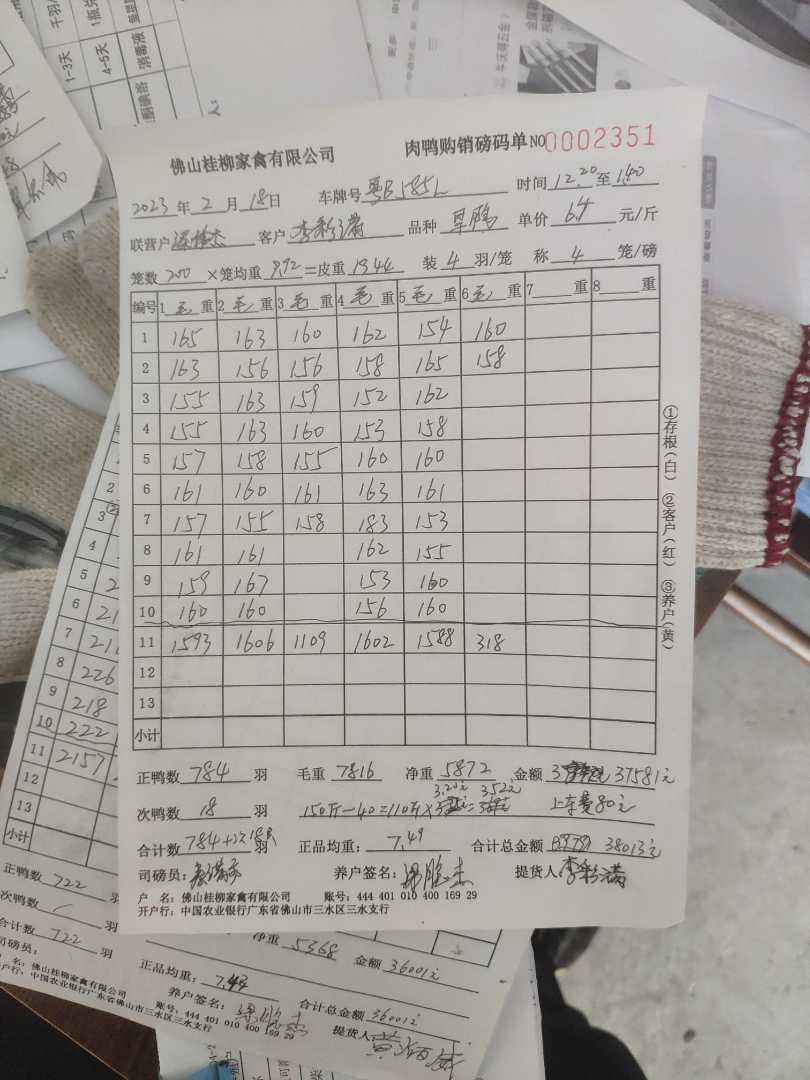 千羽/
1-3天
4-5天
消毒液
佛山桂柳家禽有限公司 肉鸭购销磅码单 NO0002351
2023年2月18日 车牌号粤B585L 时间12.20至1.40
联营户 客户李彩满 品种旱鹏 单价6.4元/斤
笼数200×笼均重9.72=皮重1944 装4羽/笼 称4笼/磅
编号 1毛重 2毛重 3毛重 4毛重 5毛重 6毛重 7重 8重
1 165 163 160 162 154 160
2 163 156 156 158 165 158
3 155 163 159 152 162
4 155 163 160 153 158
5 157 158 155 160 160
6 161 160 161 163 161
7 157 155 158 183 153
8 161 161 162 155
9 159 167 153 160
10 160 160 156 160
11 1593 1606 1109 1602 1588 318
12
13
小计
正鸭数784羽 毛重7816 净重5872 金额37581元
3.20元 352元
次鸭数18羽 150斤-40=110斤× 上车费80元
合计数784+次18只羽 正品均重:7.49 合计总金额38013元
司磅员: 养户签名: 提货人李彩满
户 名:佛山桂柳家禽有限公司 账号:444 401 010 400 169 29
开户行:中国农业银行广东省佛山市三水区三水支行
①存根(白) ②客户(红) ③养户(黄)
2
3
4
5
6 21
7 21
8 226
9 218
10 222
11 2157
12
13
小计
正鸭数722羽
次鸭数/羽
合计数722羽
净重5368 金额36001元
司磅员:
正品均重:7.43 合计总金额36001元
养户签名: 提货人
名:佛山桂柳家禽有限公司 账号:444 401 010 400 169 29
行:中国农业银行广东省佛山市三水区三水支行